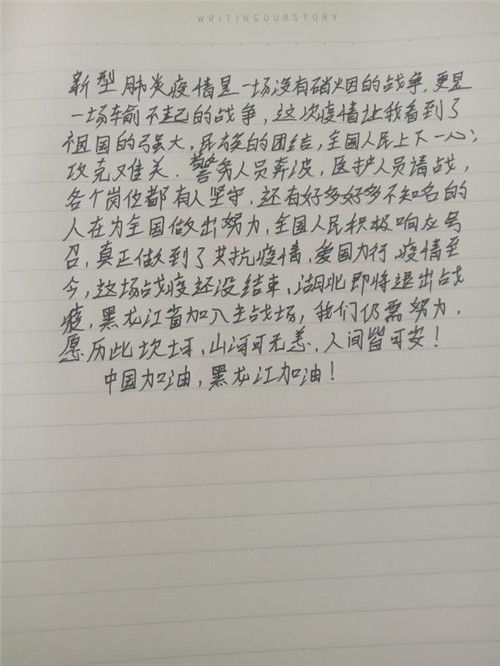 WRITINGOURSTORY
新型肺炎疫情是一场没有硝烟的战争,更是
一场输不起的战争,这次疫情让我看到了
祖国的强大,民族的团结,全国人民上下一心,
攻克难关.警务人员奔波,医护人员请战,
各个岗位都有人坚守,还有好多好多不知名的
人在为全国做出努力,全国人民积极响应号
召,真正做到了共抗疫情,爱国力行.疫情至
今,这场战疫还没结束,湖北即将退出战
疫,黑龙江省加入主战场,我们仍需努力.
愿历此坎坷,山河可无恙,人间皆可安!
中国加油,黑龙江加油!